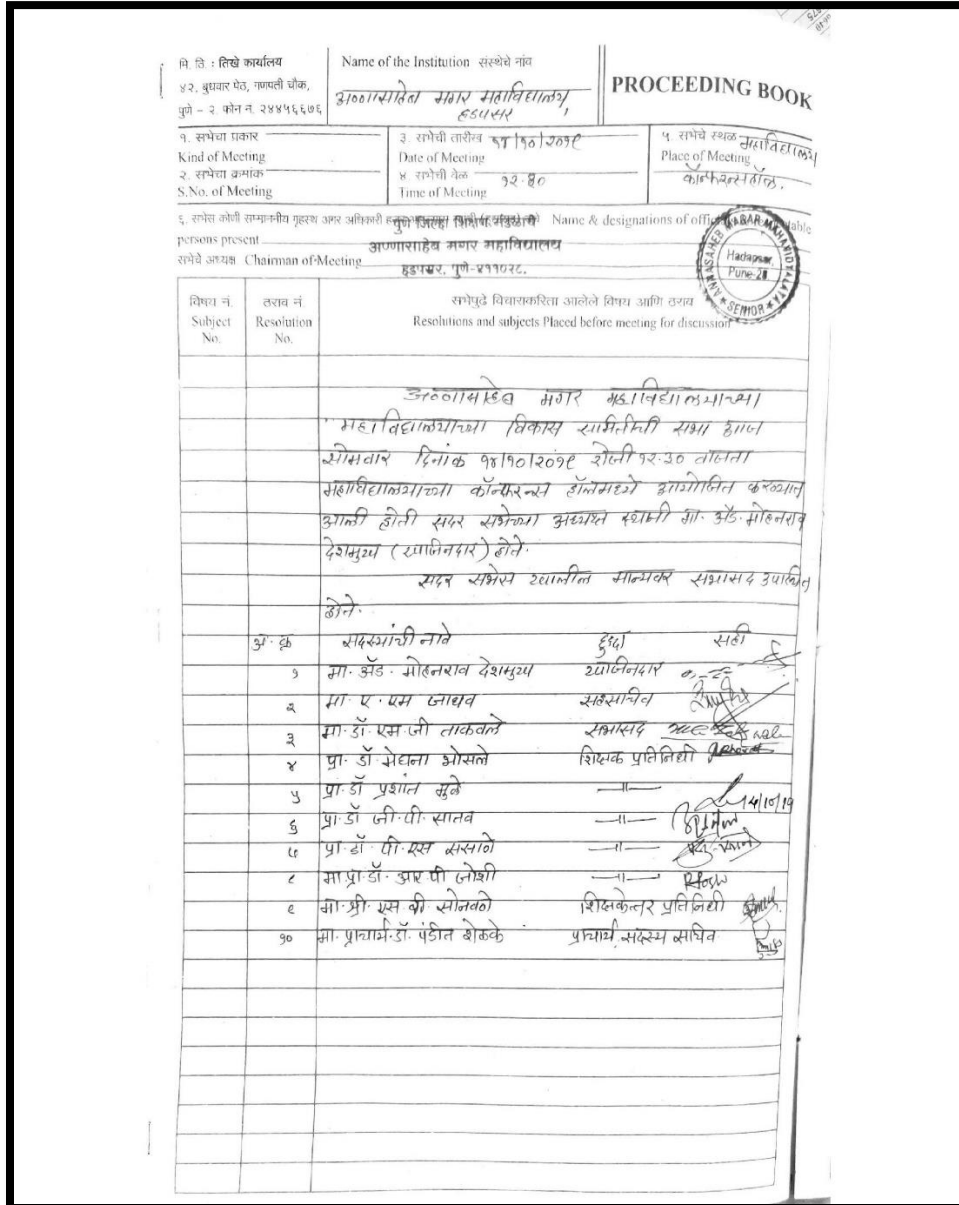 मि. ति. : तिखे कार्यालय
४२, बुधवार पेठ, गणपती चौक,
पुणे – २. फोन नं. २४४५६६७६
Name of the Institution संस्थेचे नांव
अण्णासाहेब मगर महाविद्यालय,
हडपसर
PROCEEDING BOOK
१. सभेचा प्रकार
Kind of Meeting
२. सभेचा क्रमांक
S.No. of Meeting
३. सभेची तारीख १४/१०/२०१९
Date of Meeting
४. सभेची वेळ १२.३०
Time of Meeting
५. सभेचे स्थळ महाविद्यालय
Place of Meeting
कॉन्फरन्स हॉल.
६. सभेस कोणी सन्माननीय गृहस्थ अगर अधिकारी Name & designations of
persons present
पुणे जिल्हा शिक्षण मंडळाचे
अण्णासाहेब मगर महाविद्यालय
हडपसर, पुणे-४११०२८.
सभेचे अध्यक्ष Chairman of Meeting
ANNASAHEB MAGAR MAHAVIDYALAYA
Hadapsar,
Pune-28
SENIOR
विषय नं.
Subject
No.
ठराव नं
Resolution
No.
सभेपुढे विचाराकरिता आलेले विषय आणि ठराव
Resolutions and subjects Placed before meeting for discussion
अण्णासाहेब मगर महाविद्यालयाच्या
महाविद्यालयाच्या विकास समितीची सभा आज
सोमवार दिनांक १४/१०/२०१९ रोजी १२.३० वाजता
महाविद्यालयाच्या कॉन्फरन्स हॉलमध्ये आयोजित करण्यात
आली होती सदर सभेच्या अध्यक्ष स्थानी मा. अॅड. मोहनराव
देशमुख (खजिनदार) होते.
सदर सभेस खालील मान्यवर सभासद उपस्थित
होते.
अ. क्र सदस्यांची नावे हुद्दा सही
१ मा. अॅड. मोहनराव देशमुख खजिनदार
२ मा. ए. एम जाधव सहसचिव
३ मा. डॉ. एम. जी ताकवले सभासद
४ प्रा. डॉ मेघना भोसले शिक्षक प्रतिनिधी
५ प्रा. डॉ प्रशांत मुळे —॥— 14/10/19
६ प्रा. डॉ जी. पी. सातव —॥—
७ प्रा. डॉ. पी. एस ससाणे —॥—
८ मा. प्रा. डॉ. आर. पी जोशी —॥— RJoshi
९ मा. श्री. एस. बी. सोनवणे शिक्षकेत्तर प्रतिनिधी
१० मा. प्राचार्य. डॉ. पंडीत शेळके प्राचार्य, सदस्य सचिव